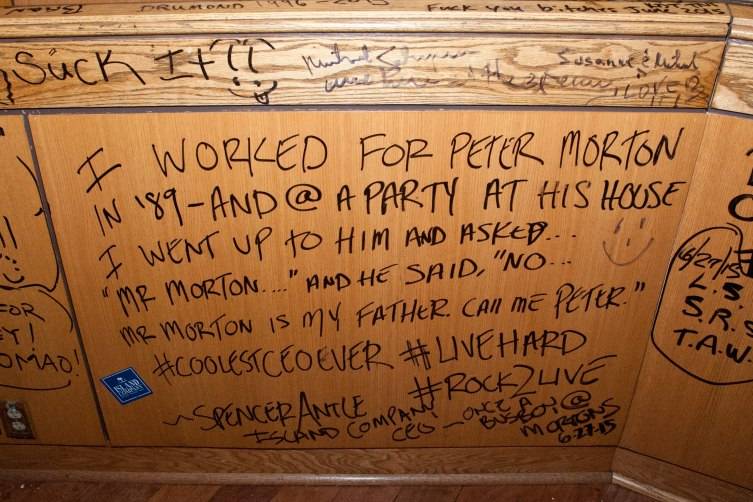 DRUMOND 1996-20
Fuck you bitches
Suck It!!
Susanne & Michael
LOVE
I WORKED FOR PETER MORTON
IN '89 - AND @ A PARTY AT HIS HOUSE
I WENT UP TO HIM AND ASKED...
"MR MORTON...." AND HE SAID, "NO...
MR MORTON IS MY FATHER. CAll ME PETER."
#COOLESTCEOEVER #LIVEHARD
#ROCK2LIVE
~SPENCER ANTLE
ISLAND COMPANY CEO - ONCE A BUSBOY @ MORTONS
6-27-15
ISLAND
FOR
Y!
OMAO!
6/27/15
L.S.
S.R.S
T.A.W.